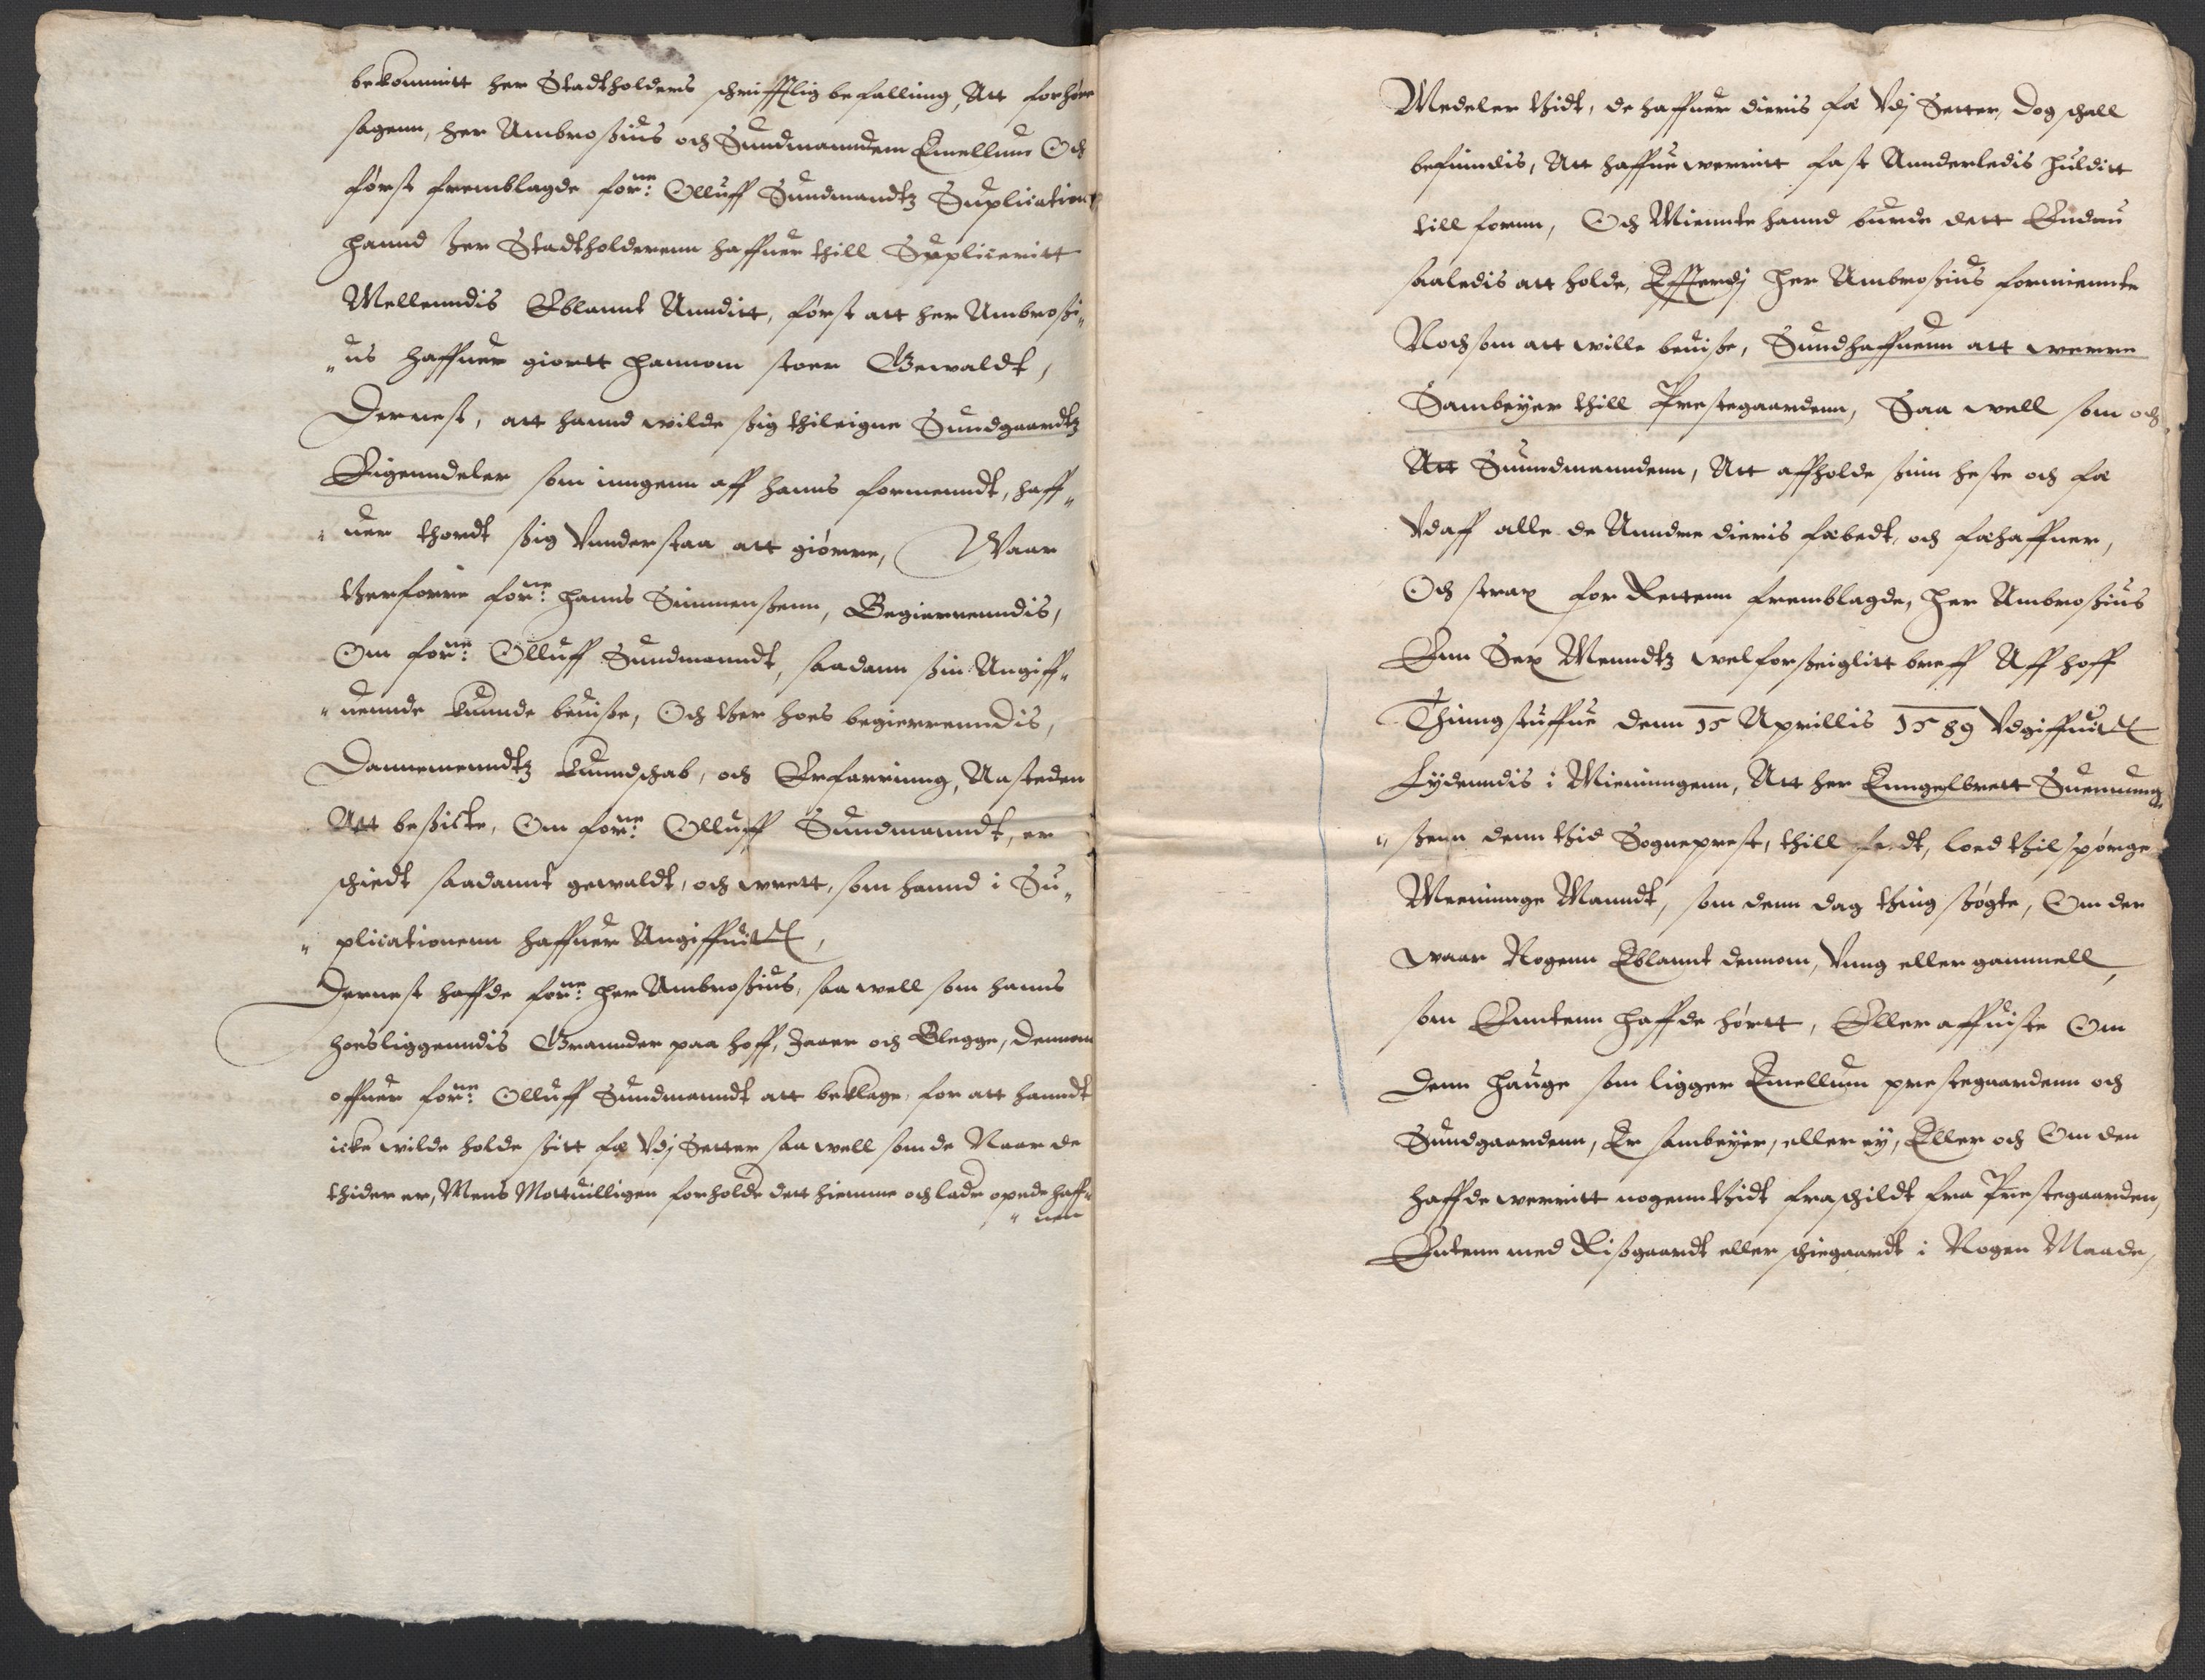 bekommitt her Stadtholders schrifftlig befalling, Att forhøre
sagenn, her Ambrosius och Sundmanndenn Emellum Och
først fremblagde forne: Olluff Sundmandtz Suplication
hannd her Stadtholderenn haffuer thill Supliceritt
Mellenndis Eblannt Anditt, først att her Ambrosi„
„us haffuer giortt hannom stoer Gewaldt,
Dernest, att hannd wilde sig thileigne Sundgaardtz
Eigenndeler som inngenn aff hanns formenndt, haff„
uer thordt sig Vnnderstaa att giörre, Waar
therforre forne: hanns Simmensenn, Begierenndis,
Om forne: Olluff Sundmanndt, saadann sin Angiff„
„uennde kunnde beuise, Och ther hoes begierrenndis,
Dannemenndtz kunndschab, och Erfarrinng, Aasteden
Att besickte, Om forne: Olluff Sundmanndt, er
schiedt saadannt gewaldt, och wrett, som hannd i Su„
„plicationenn haffuer Angiffuitt,
Dernest haffde forne: her Ambrosius, saa well som hanns
hoesliggenndis Grannder paa hoff, Jaaer och Blegge, dennom
offuer forne: Olluff Sundmanndt att beklage, for att hanndt
icke wilde holde sitt fæ Vdj Setter saa well som de Naar de
thider er, Mens Mottuilligen forholde dett hiemme och lade opede haff„
„uer
Medeler thidt, de haffuer dieris fæ Vdj Setter, Dog schall
befinndis, Att haffue werritt fast Annderledis hulditt
till fornn, Och Miennte hannd burde dett Endnu
saaledis att holde, Efterdj her Ambrosius formiennte
Noch som att wille beuise, Sundhaffuenn att werre
Sambeÿer thill Prestegaardenn, Saa well som och
Att Sunndmanndenn, Att affholde sinn heste och fæ
Vdaff alle de Anndre dieris fæbedt, och fæhaffuer,
Och strax for Rettenn fremblagde, her Ambrosius
Enn Sex Menndtz welforseiglitt breff Aff hoff
Thinngstuffue denn 15 Aprillis 1589 Vdgiffuitt
Lÿdenndis i Mieninngenn, Att her Enngelbrett Suennung„
„senn denn thid Sogneprest, thill, loed thilspørge
Meeninnge Manndt, som denn dag thing søgte, Om der
waar Nogenn Eblannt dennom, Vnng eller gammell,
som Enntenn haffde hørtt, Eller affuiste Om
denn hauge som ligger Emellum prestegaardenn och
Sundgaardenn, Er sambeÿer, eller eÿ, Eller och Om den
haffde werritt nogenn thidt fraschildt fra Prestegaarden,
Entenn med Risgaardt eller schiegaardt i Nogen Maade,